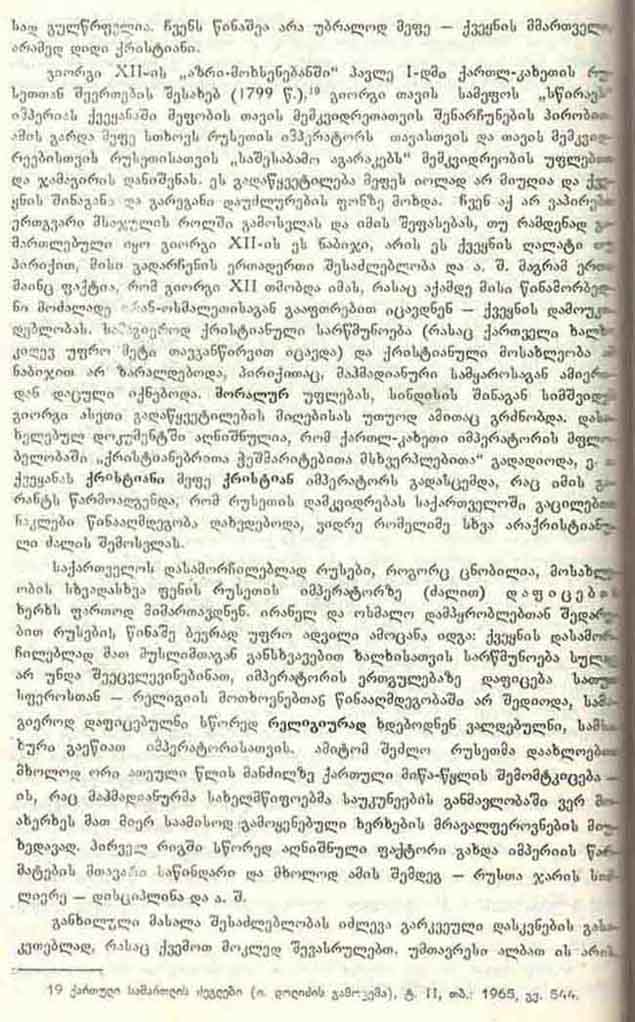 სად გულწრფელია. ჩვენს წინაშეა არა უბრალოდ მეფე — ქვეყნის მმართველი,
არამედ დიდი ქრისტიანი.
გიორგი XII-ის „აზრი-მოხსენებანში“ პავლე I-დმი ქართლ-კახეთის
სეთთან შეერთების შესახებ (1799 წ.),¹⁹ გიორგი თავის სამეფოს „სწირავს“
იმპერიას ქვეყანაში მეფობის თავის მემკვიდრეთათვის შენარჩუნების პირობით.
ამის გარდა მეფე სთხოვს რუსეთის იმპერატორს თავისთვის და თავის მემკვიდ-
რეებისთვის რუსეთისათვის „საშესაბამო აგარაკებს“ მემკვიდრეობის უფლებით
და ჯამაგირის დანიშვნას. ეს გადაწყვეტილება მეფეს იოლად არ მიუღია და ქვე-
ყნის შინაგანი და გარეგანი დაუძლურების ფონზე მოხდა. ჩვენ აქ არ ვაპირებთ
ერთგვარი მსაჯულის როლში გამოსვლას და იმის შეფასებას, თუ რამდენად გა-
მართლებული იყო გიორგი XII-ის ეს ნაბიჯი, არის ეს ქვეყნის ღალატი თუ
პირიქით, მისი გადარჩენის ერთადერთი შესაძლებლობა და ა. შ. მაგრამ ერთი
მაინც ფაქტია, რომ გიორგი XII თმობდა იმას, რასაც აქამდე მისი წინამორბედ-
ნი მოძალადე ირან-ოსმალეთისაგან გააფთრებით იცავდნენ — ქვეყნის დამოუკი-
დებლობას. სამაგიეროდ ქრისტიანული სარწმუნოება (რასაც ქართველი ხალხი
კიდევ უფრო მეტი თავგანწირვით იცავდა) და ქრისტიანული მოსახლეობა ამ
ნაბიჯით არ ზარალდებოდა, პირიქითაც, მაჰმადიანური სამყაროსაგან ამიერი-
დან დაცული იქნებოდა. მორალურ უფლებას, სინდისის შინაგან სიმშვიდეს
გიორგი ასეთი გადაწყვეტილების მიღებისას უთუოდ ამითაც გრძნობდა. დასა-
ხელებულ დოკუმენტში აღნიშნულია, რომ ქართლ-კახეთი იმპერატორის მფლო-
ბელობაში „ქრისტიანებრითა ჭეშმარიტებითა მსხვერპლებითა“ გადადიოდა, ე. ი.
ქვეყანას ქრისტიანი მეფე ქრისტიან იმპერატორს გადასცემდა, რაც იმის გა-
რანტს წარმოადგენდა, რომ რუსეთის დამკვიდრებას საქართველოში გაცილებით
ნაკლები წინააღმდეგობა დახვდებოდა, ვიდრე რომელიმე სხვა არაქრისტიანუ-
ლი ძალის შემოსვლას.
საქართველოს დასამორჩილებლად რუსები, როგორც ცნობილია, მოსახლე-
ობის სხვადასხვა ფენის რუსეთის იმპერატორზე (ძალით) დაფიცების
ხერხს ფართოდ მიმართავდნენ. ირანელ და ოსმალო დამპყრობლებთან შედარე-
ბით რუსების წინაშე ბევრად უფრო ადვილი ამოცანა იდგა: ქვეყნის დასამორ-
ჩილებლად მათ მუსლიმთაგან განსხვავებით ხალხისათვის სარწმუნოება სულაც
არ უნდა შეეცვლევინებინათ, იმპერატორის ერთგულებაზე დაფიცება სათუთ
სფეროსთან — რელიგიის მოთხოვნებთან წინააღმდეგობაში არ შედიოდა, სამა-
გიეროდ დაფიცებულნი სწორედ რელიგიურად ხდებოდნენ ვალდებულნი, სამსა-
ხური გაეწიათ იმპერატორისათვის. ამიტომ შეძლო რუსეთმა დაახლოებით
მხოლოდ ორი ათეული წლის მანძილზე ქართული მიწა-წყლის შემომტკიცება —
ის, რაც მაჰმადიანურმა სახელმწიფოებმა საუკუნეების განმავლობაში ვერ მო-
ახერხეს მათ მიერ საამისოდ გამოყენებული ხერხების მრავალფეროვნების მიუ-
ხედავად. პირველ რიგში სწორედ აღნიშნული ფაქტორი გახდა იმპერიის წარ-
მატების მთავარი საწინდარი და მხოლოდ ამის შემდეგ — რუსთა ჯარის სიძ-
ლიერე — დისციპლინა და ა. შ.
განხილული მასალა შესაძლებლობას იძლევა გარკვეული დასკვნების გასა-
კეთებლად, რასაც ქვემოთ მოკლედ შევასრულებთ. უმთავრესი ალბათ ის არის,
19 ქართული სამართლის ძეგლები (ი. დოლიძის გამოცემა), ტ. II, თბ., 1965, გვ. 544.